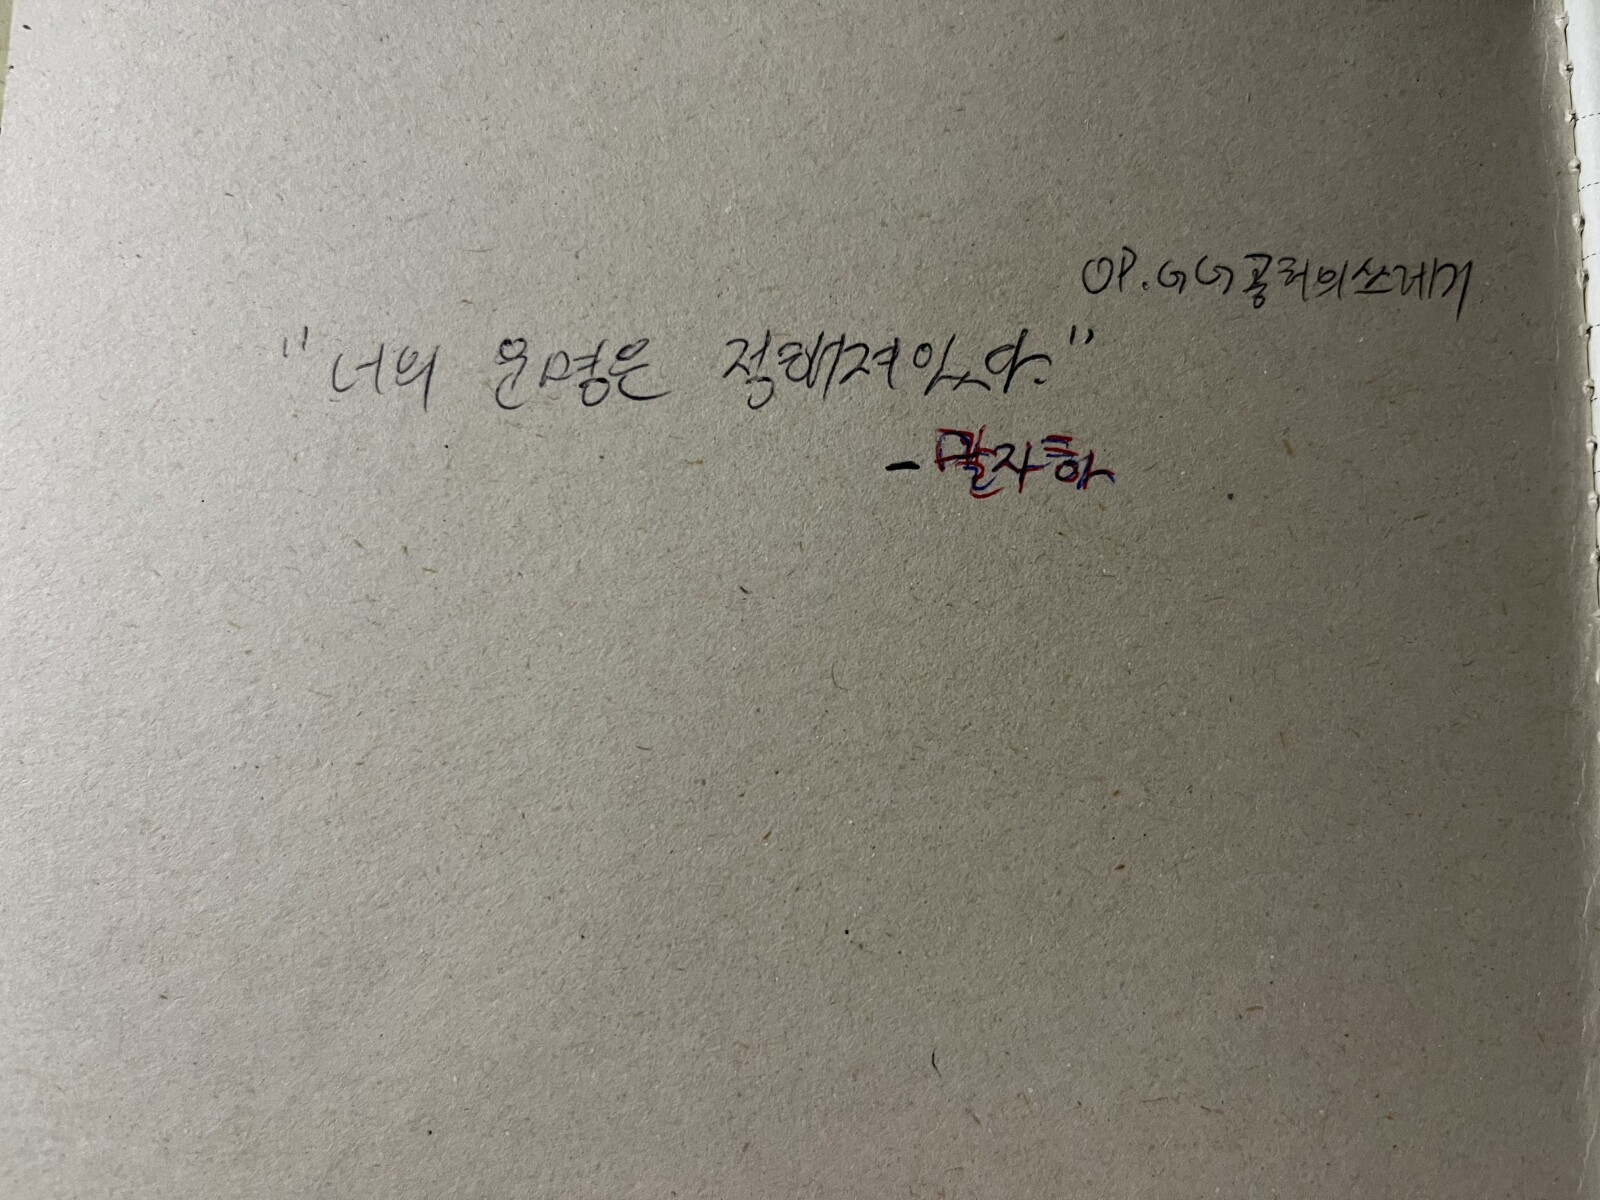 OP.GG 공허의쓰레기
"너의 운명은 정해져있다."
- 말자하